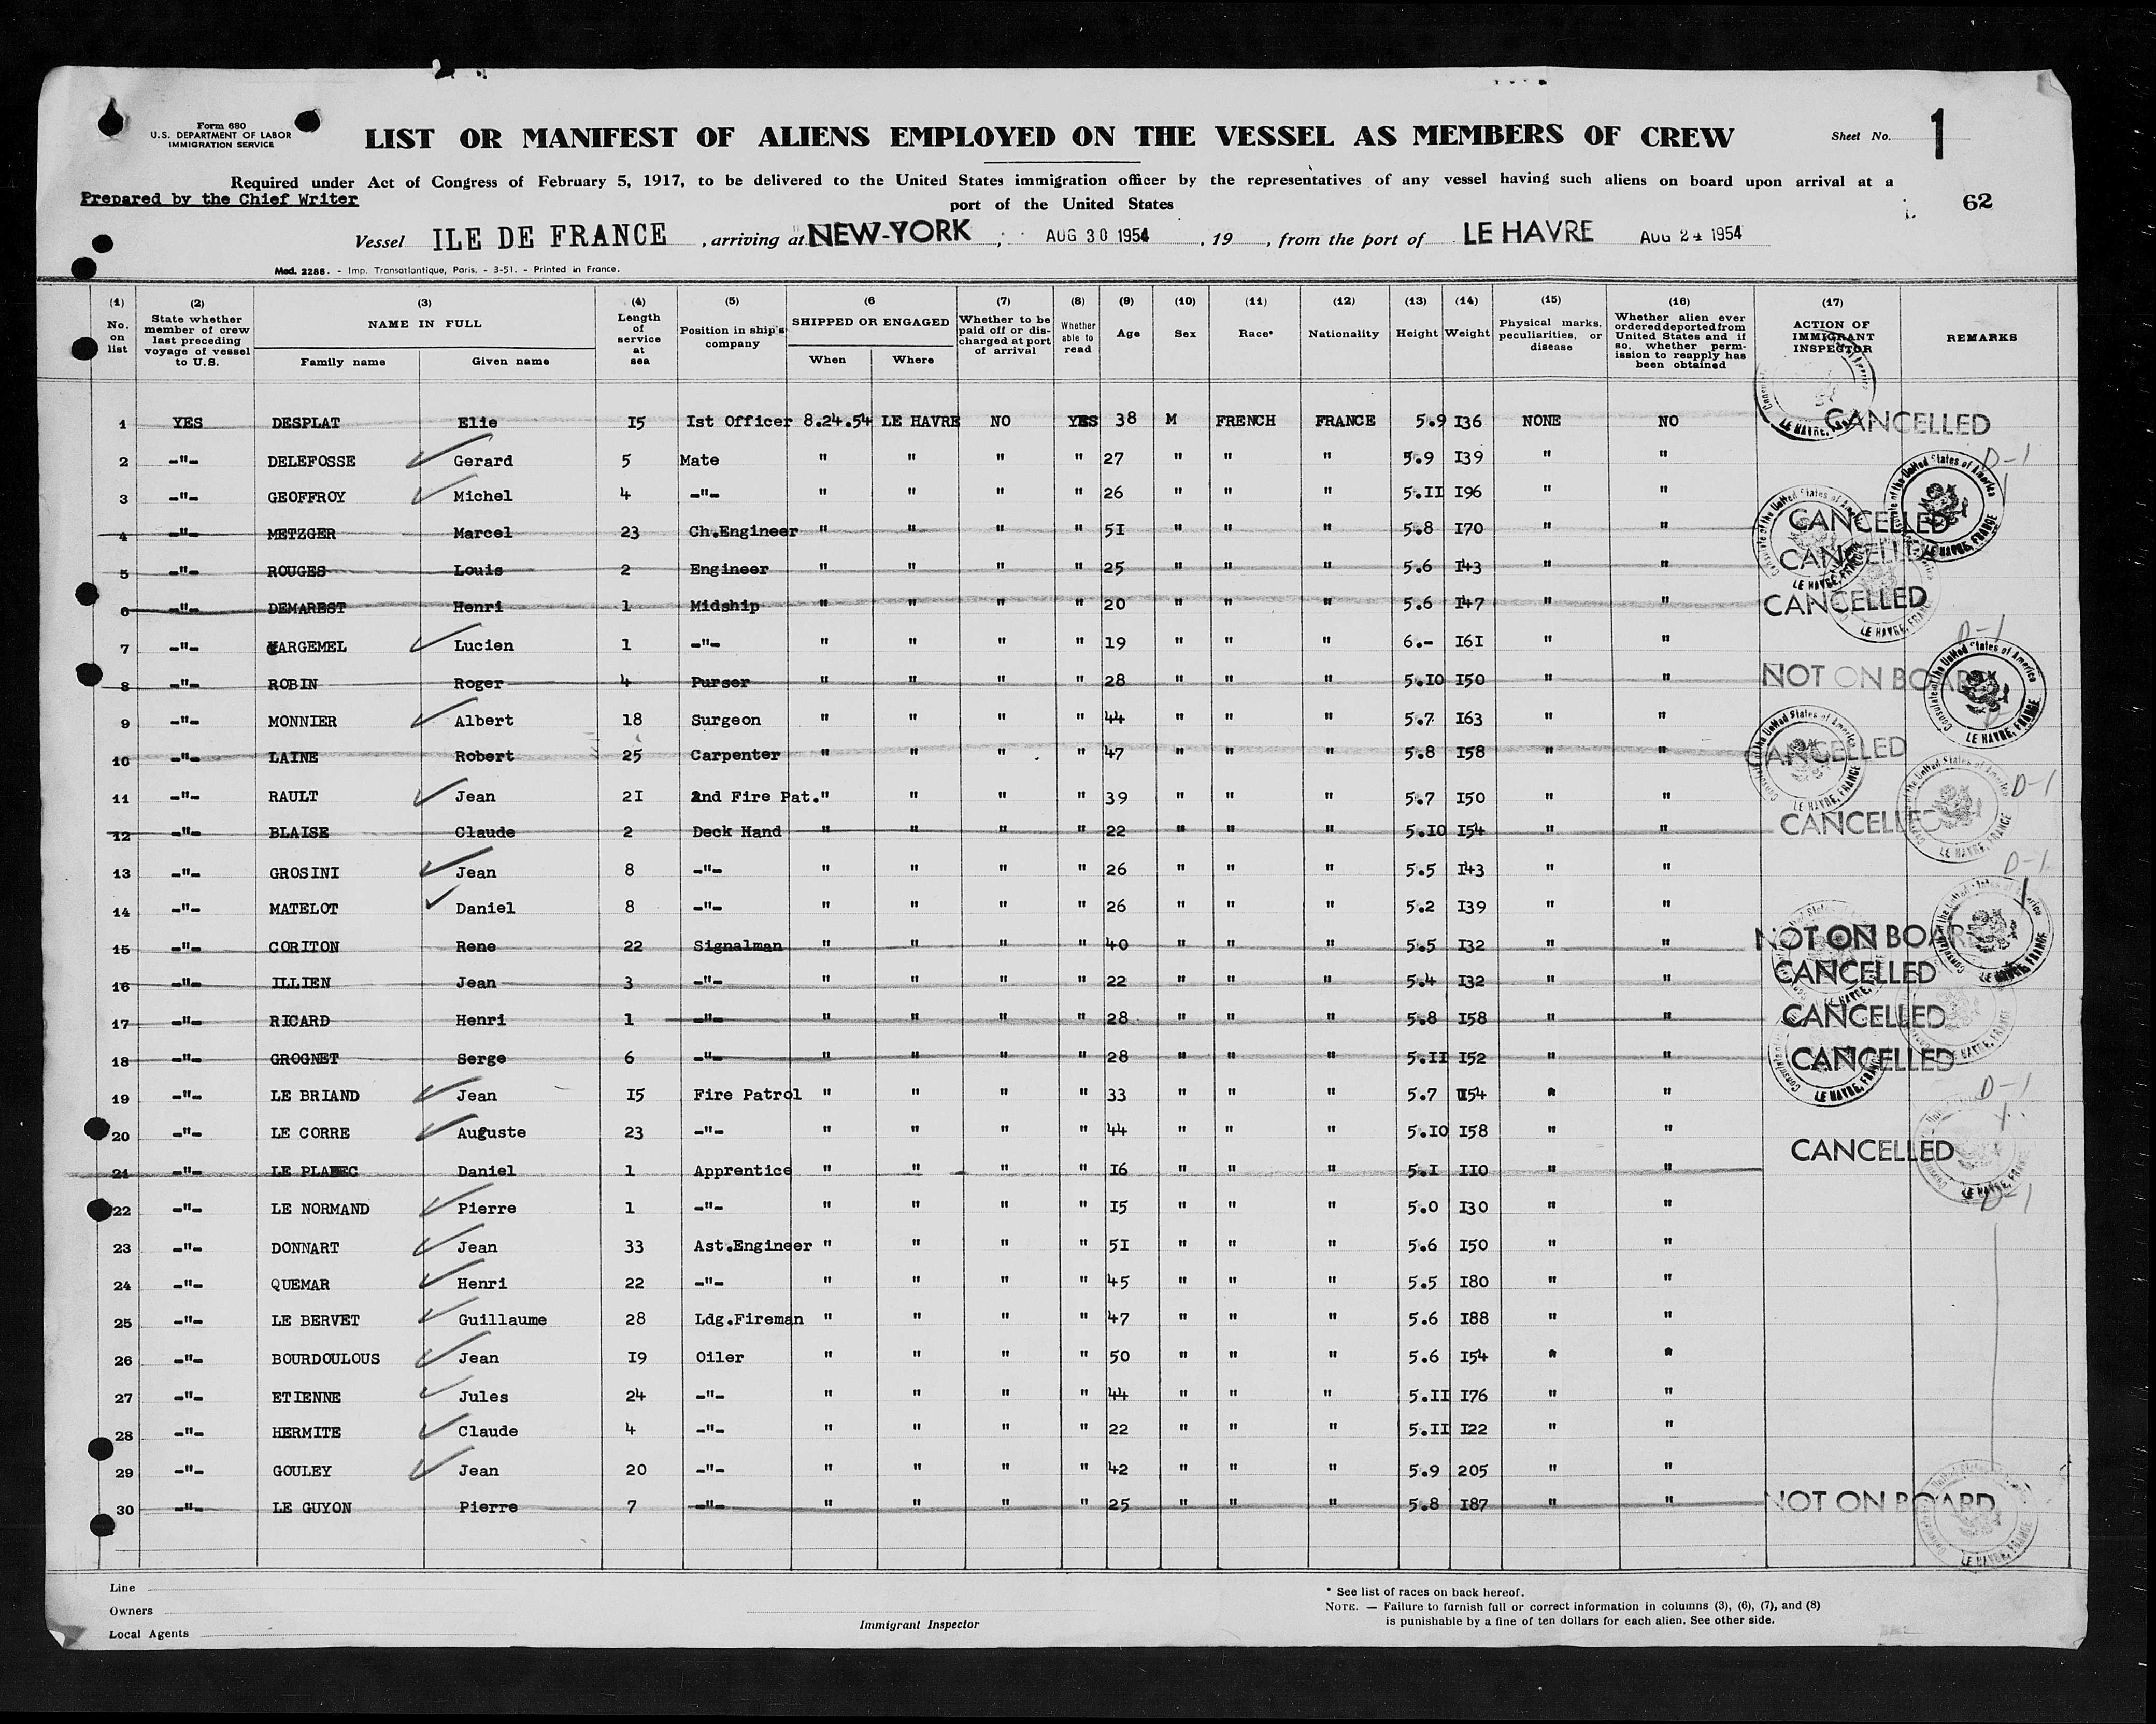 Form 680
U.S. DEPARTMENT OF LABOR
IMMIGRATION SERVICE
LIST OR MANIFEST OF ALIENS EMPLOYED ON THE VESSEL AS MEMBERS OF CREW
Sheet No. 1
Required under Act of Congress of February 5, 1917, to be delivered to the United States immigration officer by the representatives of any vessel having such aliens on board upon arrival at a
Prepared by the Chief Writer
port of the United States
62
Vessel ILE DE FRANCE , arriving at NEW-YORK ; AUG 30 1954 , 19 , from the port of LE HAVRE AUG 24 1954
Mod. 2286. - Imp. Transatlantique, Paris. - 3-51. - Printed in France.
(1) (2) (3) (4) (5) (6 (7) (8) (9) (10) (11) (12) (13) (14) (15) (16) (17)
No. on list
State whether member of crew last preceding voyage of vessel to U.S.
NAME IN FULL
Family name Given name
Length of service at sea
Position in ship's company
SHIPPED OR ENGAGED
When Where
Whether to be paid off or discharged at port of arrival
Whether able to read
Age
Sex
Race*
Nationality
Height
Weight
Physical marks, peculiarities, or disease
Whether alien ever ordered deported from United States and if so, whether permission to reapply has been obtained
ACTION OF IMMIGRANT INSPECTOR
REMARKS
1 YES DESPLAT Elie 15 Ist Officer 8.24.54 LE HAVRE NO YES 38 M FRENCH FRANCE 5.9 136 NONE NO CANCELLED
2 -"- DELEFOSSE Gerard 5 Mate " " " " 27 " " " 5.9 139 " " D-1
3 -"- GEOFFROY Michel 4 -"- " " " " 26 " " " 5.II 196 " "
4 -"- METZGER Marcel 23 Ch.Engineer " " " " 51 " " " 5.8 170 " " CANCELLED
5 -"- ROUGES Louis 2 Engineer " " " " 25 " " " 5.6 143 " " CANCELLED
6 -"- DEMAREST Henri 1 Midship " " " " 20 " " " 5.6 147 " " CANCELLED
7 -"- VARGEMEL Lucien 1 -"- " " " " 19 " " " 6.- 161 " " D-1
8 -"- ROBIN Roger 4 Purser " " " " 28 " " " 5.10 150 " " NOT ON BOARD
9 -"- MONNIER Albert 18 Surgeon " " " " 44 " " " 5.7 163 " "
10 -"- LAINE Robert 25 Carpenter " " " " 47 " " " 5.8 158 " " CANCELLED
11 -"- RAULT Jean 21 2nd Fire Pat. " " " " 39 " " " 5.7 150 " " D-1
12 -"- BLAISE Claude 2 Deck Hand " " " " 22 " " " 5.10 154 " " CANCELLED
13 -"- GROSINI Jean 8 -"- " " " " 26 " " " 5.5 143 " " D-1
14 -"- MATELOT Daniel 8 -"- " " " " 26 " " " 5.2 139 " "
15 -"- CORITON Rene 22 Signalman " " " " 40 " " " 5.5 132 " " NOT ON BOARD
16 -"- ILLIEN Jean 3 -"- " " " " 22 " " " 5.4 132 " " CANCELLED
17 -"- RICARD Henri 1 -"- " " " " 28 " " " 5.8 158 " " CANCELLED
18 -"- GROGNET Serge 6 -"- " " " " 28 " " " 5.II 152 " " CANCELLED
19 -"- LE BRIAND Jean 15 Fire Patrol " " " " 33 " " " 5.7 154 " " D-1
20 -"- LE CORRE Auguste 23 -"- " " " " 44 " " " 5.10 158 " "
21 -"- Daniel 1 Apprentice " " " " 16 " " " 5.1 110 " " CANCELLED
22 -"- LE NORMAND Pierre 1 -"- " " " " 15 " " " 5.0 130 " " D-1
23 -"- DONNART Jean 33 Ast.Engineer " " " " 51 " " " 5.6 150 " "
24 -"- QUEMAR Henri 22 -"- " " " " 45 " " " 5.5 180 " "
25 -"- LE BERVET Guillaume 28 Ldg.Fireman " " " " 47 " " " 5.6 188 " "
26 -"- BOURDOULOUS Jean 19 Oiler " " " " 50 " " " 5.6 154 " "
27 -"- ETIENNE Jules 24 -"- " " " " 44 " " " 5.II 176 " "
28 -"- HERMITE Claude 4 -"- " " " " 22 " " " 5.II 122 " "
29 -"- GOULEY Jean 20 -"- " " " " 42 " " " 5.9 205 " "
30 -"- LE GUYON Pierre 7 -"- " " " " 25 " " " 5.8 187 " " NOT ON BOARD
Consulate of the United States of America LE HAVRE, FRANCE
Line
Owners
Local Agents
Immigrant Inspector
* See list of races on back hereof.
NOTE. — Failure to furnish full or correct information in columns (3), (6), (7), and (8)
is punishable by a fine of ten dollars for each alien. See other side.